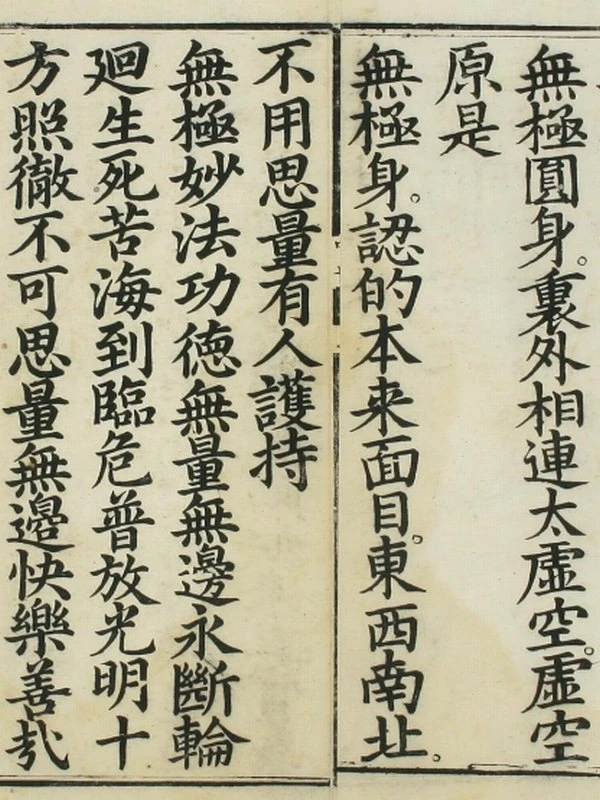 無極圓身。裏外相連太虛空。虛空
原是
無極身。認的本来面目。東西南北。
不用思量有人護持
無極妙法功德無量無邊永斷輪
廻生死苦海到臨危普放光明十
方照徹不可思量無邊快樂善哉